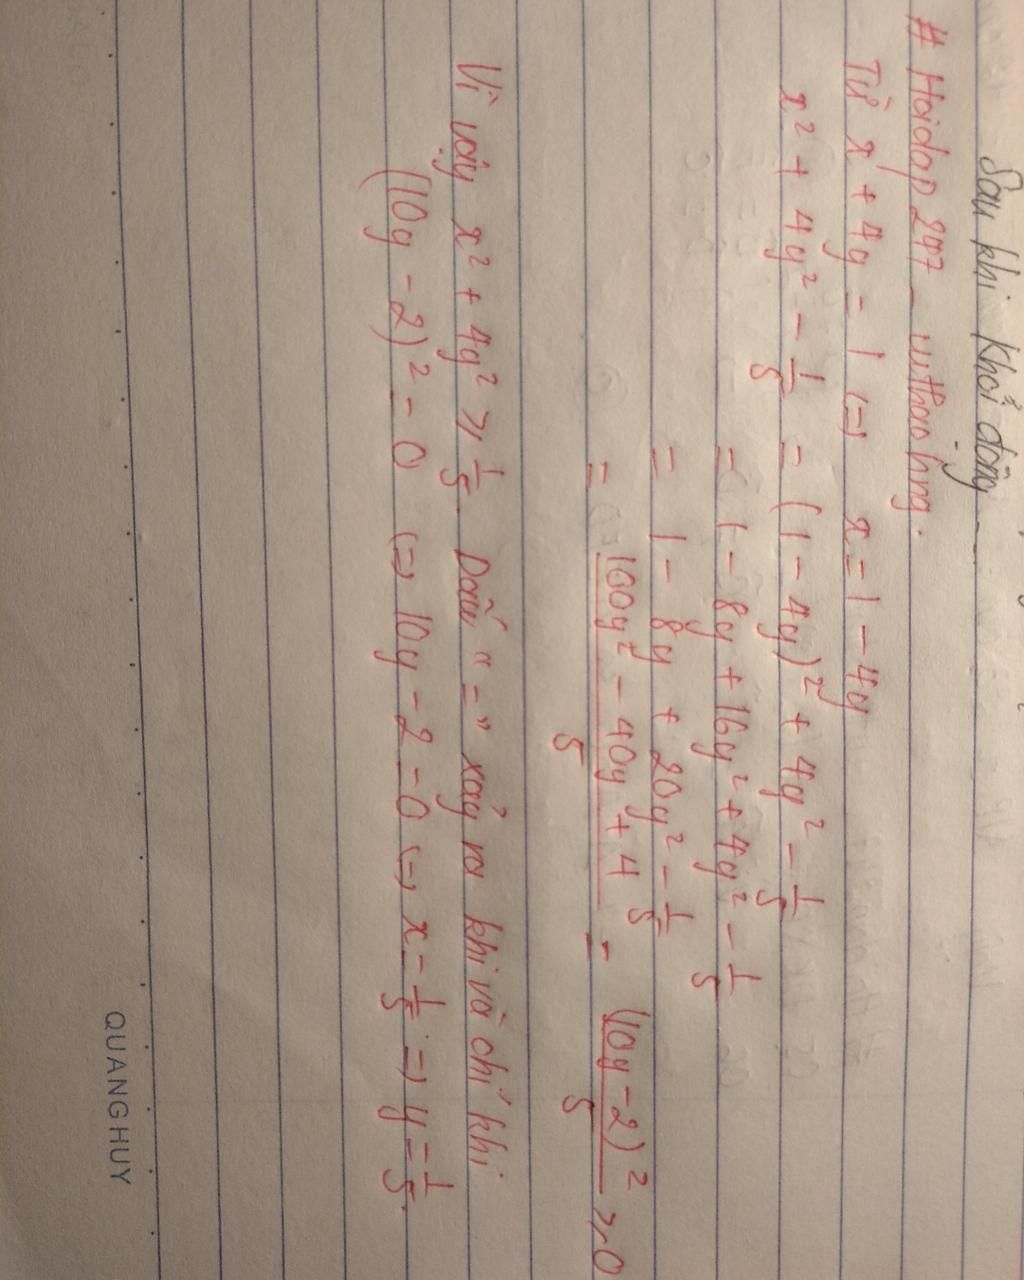 Sau khi khởi động
# Hoidap 247 _ withaohng.
Từ x + 4y = 1 (=) x = 1 - 4y
x² + 4y² - 1/5 = (1 - 4y)² + 4y² - 1/5
= 1 - 8y + 16y² + 4y² - 1/5
= 1 - 8y + 20y² - 1/5
= 100y² - 40y + 4 / 5 = (10y - 2)² / 5 ≥ 0
Vì vậy x² + 4y² ≥ 1/5. Dấu "=" xảy ra khi và chỉ khi
(10y - 2)² = 0 (=) 10y - 2 = 0 (=) x = 1/5 => y = 1/5.
QUANG HUY